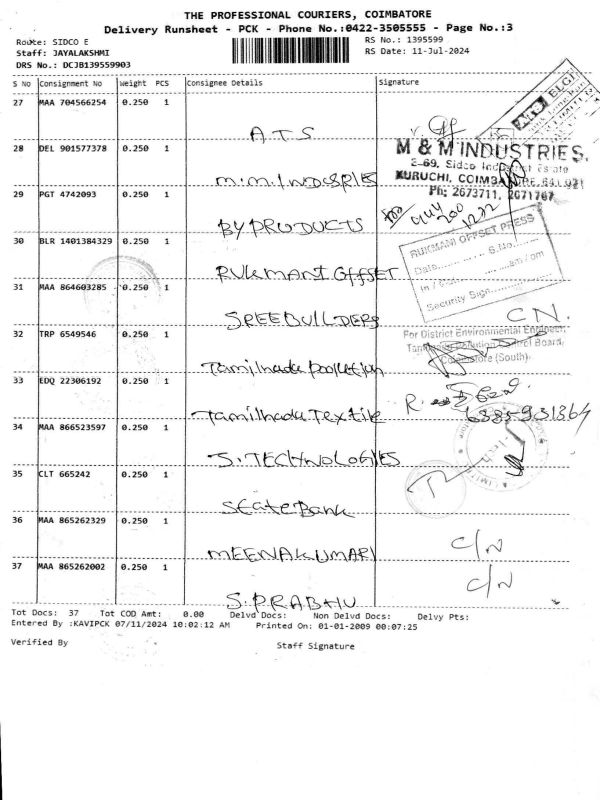 THE PROFESSIONAL COURIERS, COIMBATORE
Delivery Runsheet - PCK - Phone No.:0422-3505555 - Page No.:3
Route: SIDCO E
RS No.: 1395599
Staff: JAYALAKSHMI
RS Date: 11-Jul-2024
DRS No.: DCJB139559903
S No Consignment No Weight PCS Consignee Details Signature
27 MAA 704566254 0.250 1
ATS
28 DEL 901577378 0.250 1
M & M INDUSTRIES.
2-69, Sidco Industrial Estate
KURUCHI, COIMBATORE-641 021
Ph: 2673711, 2671767
M.M. INDUSRIES
29 PGT 4742093 0.250 1
BY PRODUCTS
30 BLR 1401384329 0.250 1
RUKMANI OFFSET PRESS
Date S.No.
In / am / pm
Security Sign
RUKMANI OFFSET
31 MAA 864603285 0.250 1
SREEBUILDERS
C N.
32 TRP 6549546 0.250 1
For District Environmental Engineer,
Tamilnadu Pollution Control Board,
Coimbatore (South).
Tamilnadu Pollution
33 EDQ 22306192 0.250 1
R.
6385931364
Tamilnadu Textile
34 MAA 866523597 0.250 1
S. TECHNOLOGIES
35 CLT 665242 0.250 1
State Bank
36 MAA 865262329 0.250 1
MEENAKUMARI
C/N
37 MAA 865262002 0.250 1
C/N
S. PRABHU
Tot Docs: 37 Tot COD Amt: 0.00 Delvd Docs: Non Delvd Docs: Delvy Pts:
Entered By :KAVIPCK 07/11/2024 10:02:12 AM Printed On: 01-01-2009 00:07:25
Verified By
Staff Signature